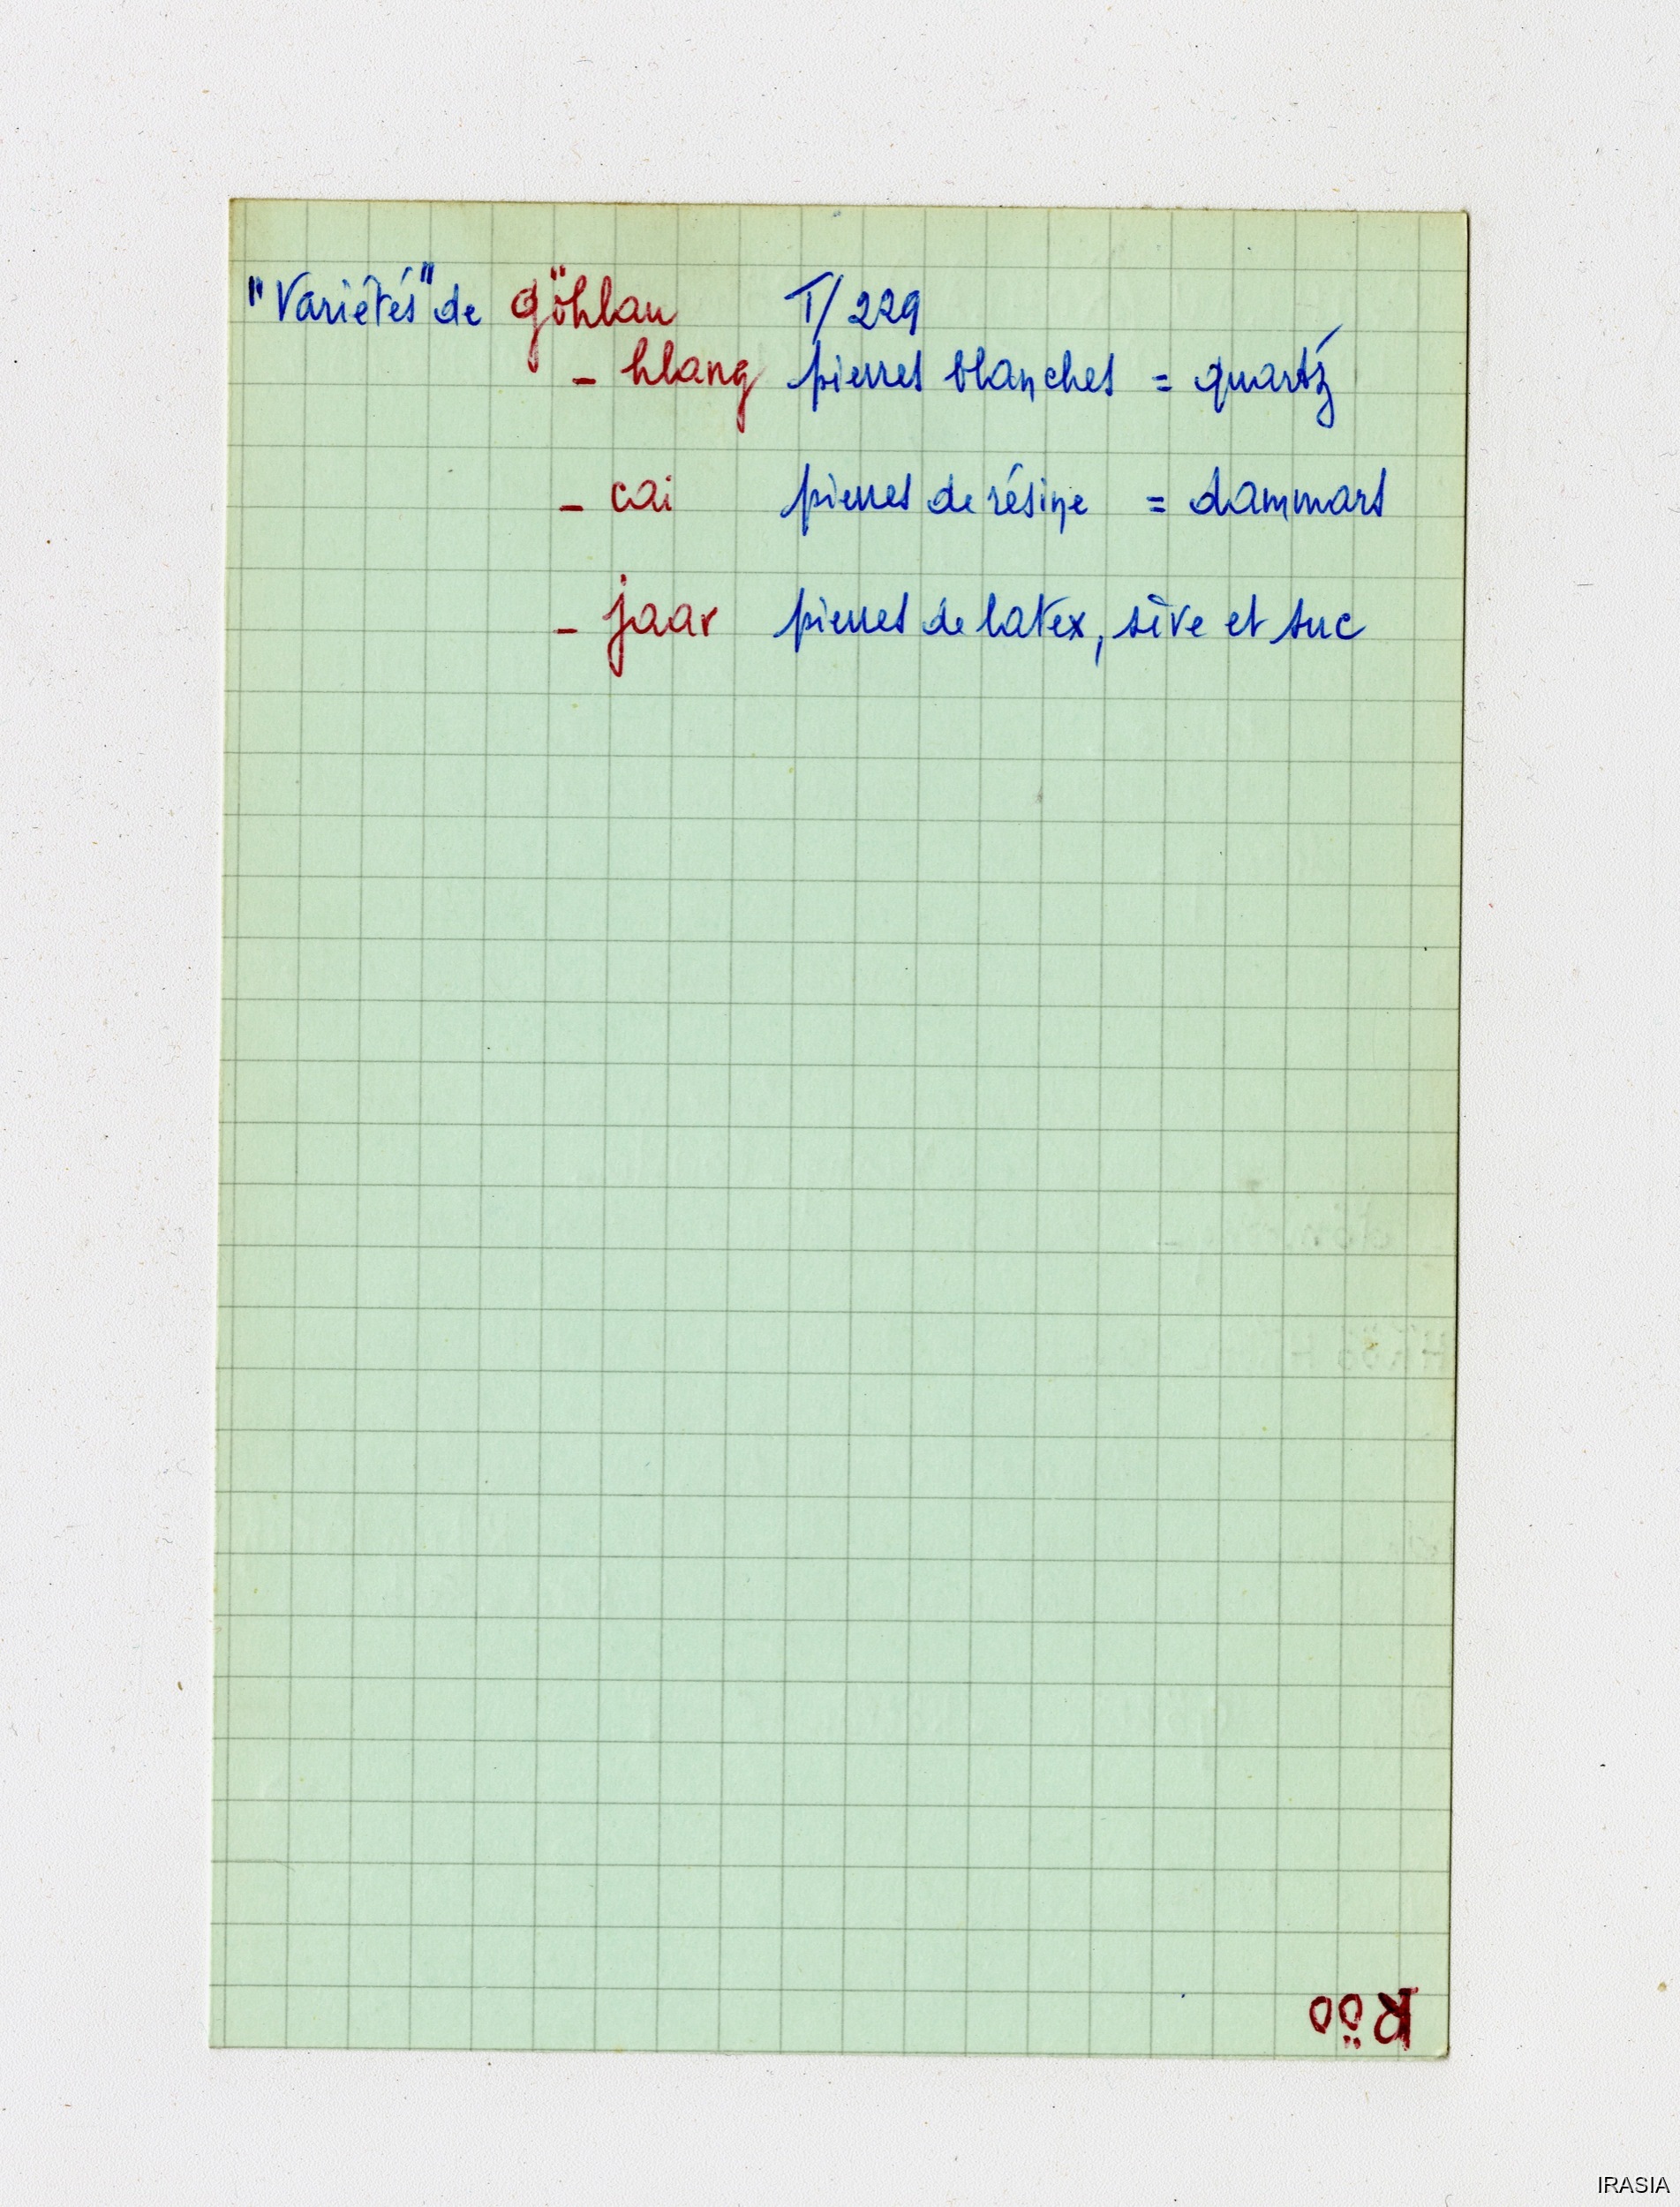 "Variétés" de göhlau T/229
- hlang pierres blanches = quartz
- cai pierres de résine = dammars
- jaar pierres de latex, sève et suc
Röo
IRASIA